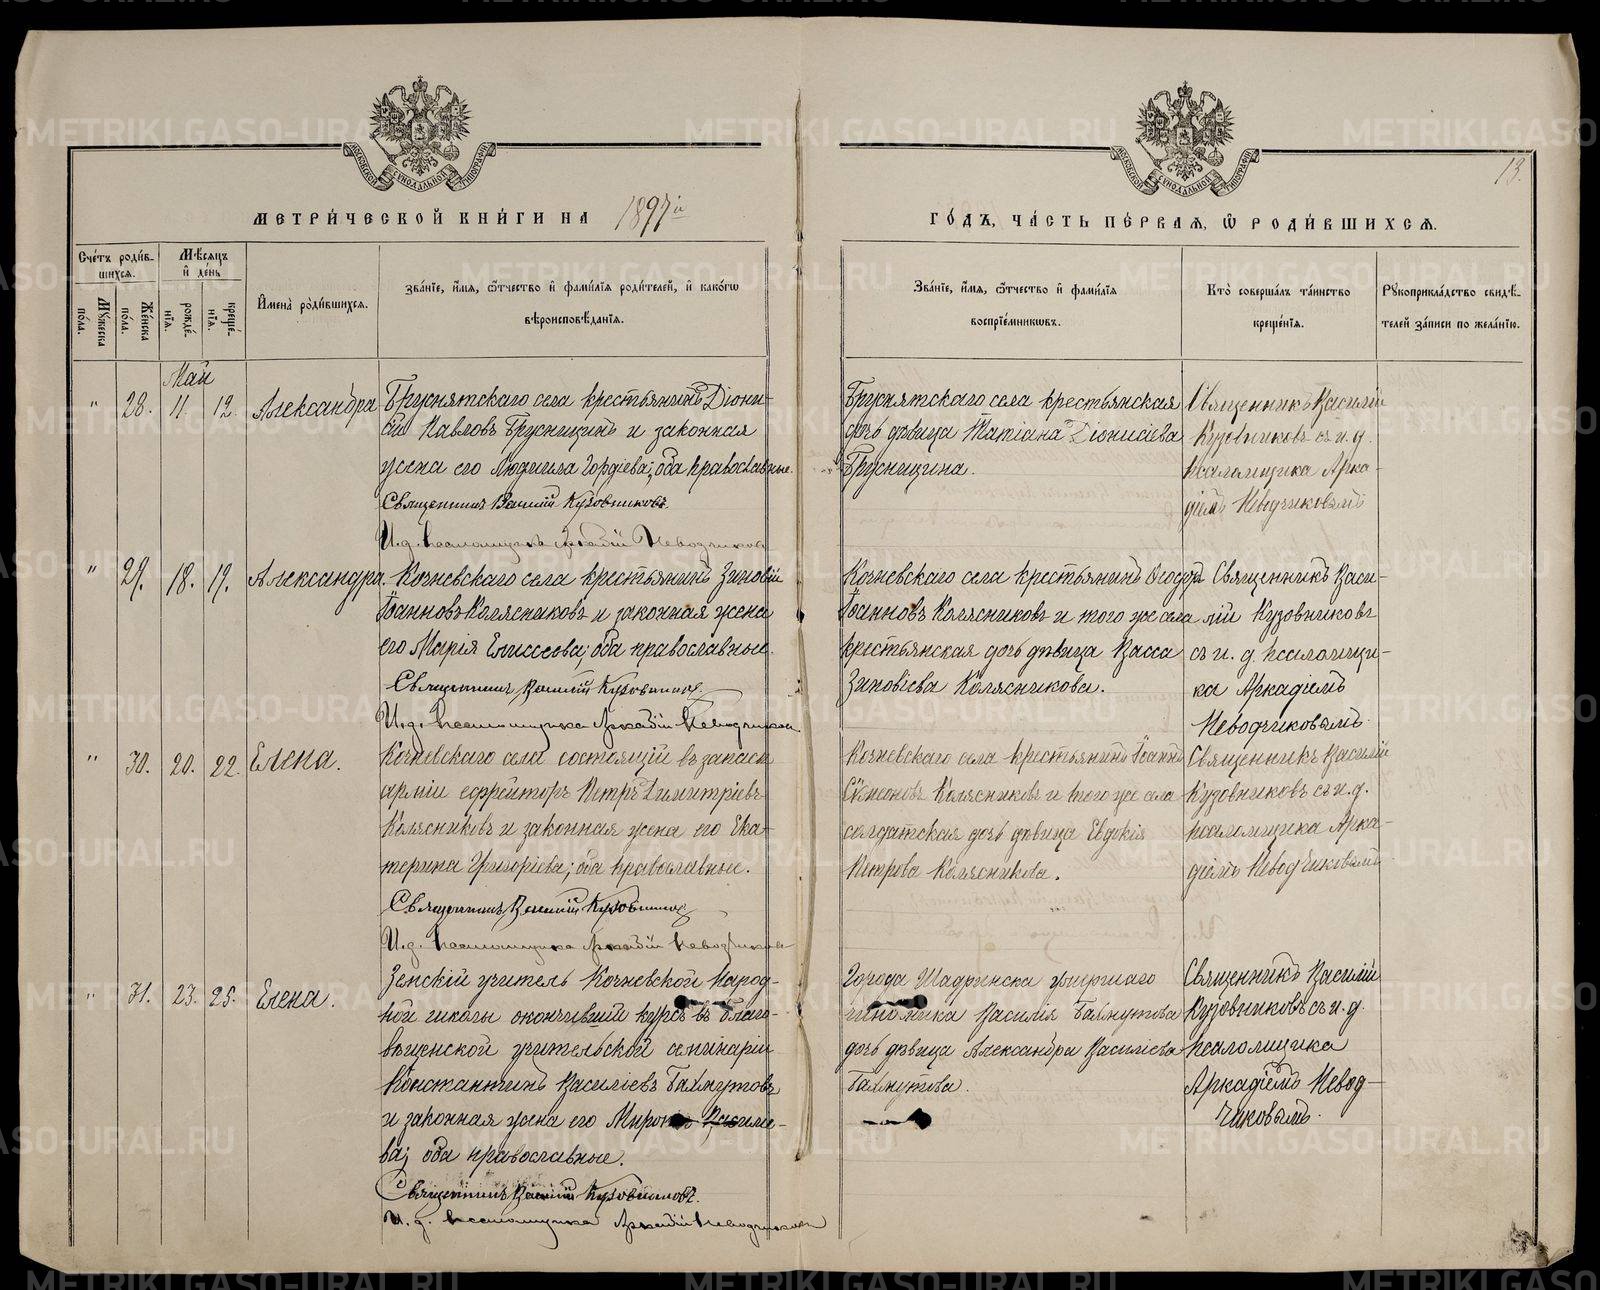 METRIKI.GASO-URAL.RU
МОСКОВСКОЙ СѴНОДАЛЬНОЙ ТИПОГРАФІИ
МОСКОВСКОЙ СѴНОДАЛЬНОЙ ТИПОГРАФІИ
13.
МЕТРИ́ЧЕСКОЙ КНИ́ГИ НА 1897й
ГО́ДЪ, ЧА́СТЬ ПЕ́РВАЯ, Ѽ РОДИ́ВШИХСЯ.
Сче́тъ роди́вшихся.
Мѣ́сяцъ и҆ де́нь
Мꙋжеска по́ла.
Же́нска по́ла.
рожде́нїя.
креще́нїя.
И҆мена̀ роди́вшихся.
Зва́нїе, и҆́мя, ѻ҆́тчество и҆ фами́лїя роди́телей, и҆ како́гѡ
вѣроисповѣ́данїя.
Зва́нїе, и҆́мя, ѻ҆́тчество и҆ фами́лїя
воспрїе́мникѡвъ.
Кто̀ соверша́лъ та́инство
креще́нїя.
Рꙋкоприкла́дство свидѣ́-
телей за́писи по жела́нїю.
Май
" 28. 11. 12. Александра
Бруснятскаго села крестьянинъ Діони-
сій Павловъ Брусницинъ и законная
жена его Людмила Гордіева; оба православные.
Священникъ Василій Кузовниковъ.
И.д. псаломщика Аркадій Неводчиковъ
Бруснятскаго села крестьянская
дочь дѣвица Татіана Діонисіева
Брусницина.
Священникъ Василій
Кузовниковъ съ и.д.
псаломщика Арка-
діемъ Неводчиковымъ
" 29. 18. 19. Александра.
Кочневскаго села крестьянинъ Зиновій
Іоанновъ Колясниковъ и законная жена
его Марія Елисеева; оба православные.
Священникъ Василій Кузовниковъ.
И.д. псаломщика Аркадій Неводчиковъ
Кочневскаго села крестьянинъ Ѳеодоръ
Іоанновъ Колясниковъ и того же села
крестьянская дочь дѣвица Васса
Зиновіева Колясникова.
Священникъ Васи-
лій Кузовниковъ
съ и. д. псаломщи-
ка Аркадіемъ
Неводчиковымъ.
" 30. 20. 22. Елена.
Кочневскаго села состоящій въ запасѣ
арміи ефрейторъ Петръ Димитріевъ
Колясниковъ и законная жена его Ека-
терина Григоріева; оба православные.
Священникъ Василій Кузовниковъ
И.д. псаломщика Аркадій Неводчиковъ
Кочневскаго села крестьянинъ Іоаннъ
Сѵмеоновъ Колясниковъ и того же села
солдатская дочь дѣвица Евдокія
Петрова Колясникова.
Священникъ Василій
Кузовниковъ съ и.д.
псаломщика Арка-
діемъ Неводчиковымъ
" 31. 23. 25. Елена.
Земскій учитель Кочневской народ-
ной школы окончившій курсъ въ Благо-
вѣщенской учительской семинаріи
Константинъ Василіевъ Бахмутовъ
и законная жена его
ва; оба православные.
Священникъ Василій Кузовниковъ.
И. д. псаломщика Аркадій Неводчиковъ
Города Шадринска умершаго
чиновника Василія Бахмутова
дочь дѣвица Александра Василіева
Бахмутова.
Священникъ Василій
Кузовниковъ съ и.д.
псаломщика
Аркадіемъ Невод-
чиковымъ.